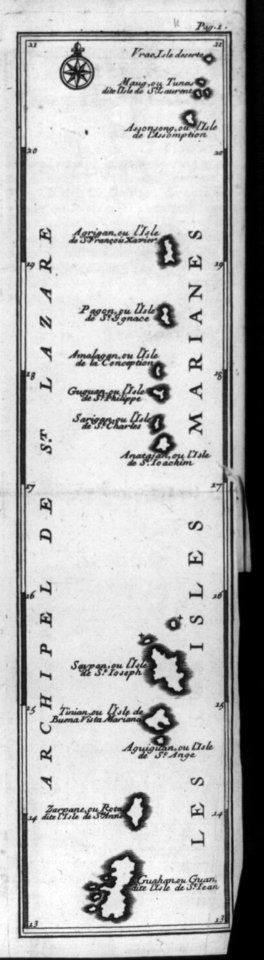 Pag. 1.
21
21
Vrac, Isle deserte
Maug, ou Tunas
dite l'Isle de St. Laurent
Assonsong, ou l'Isle
de l'Assomption
20
Agrigan, ou l'Isle
de St. François Xavier
19
19
Pagon, ou l'Isle
de St. Ignace
Amalagan, ou l'Isle
de la Conception
18
18
Guguan, ou l'Isle
de St. Philippe
Sarigan, ou l'Isle
de St. Charles
Anatajan, ou l'Isle
de St. Ioachim
17
17
16
16
Seypan, ou l'Isle
de St. Ioseph
15
15
Tinian, ou l'Isle de
Buena Vista Mariana
Aguiguan, ou l'Isle
de St. Ange
Zarpane, ou Rota
dite l'Isle de Ste. Anne
14
14
Guahan, ou Guan,
dite l'Isle de St. Iean
13
13
ARCHIPEL DE ST. LAZARE
LES ISLES MARIANES